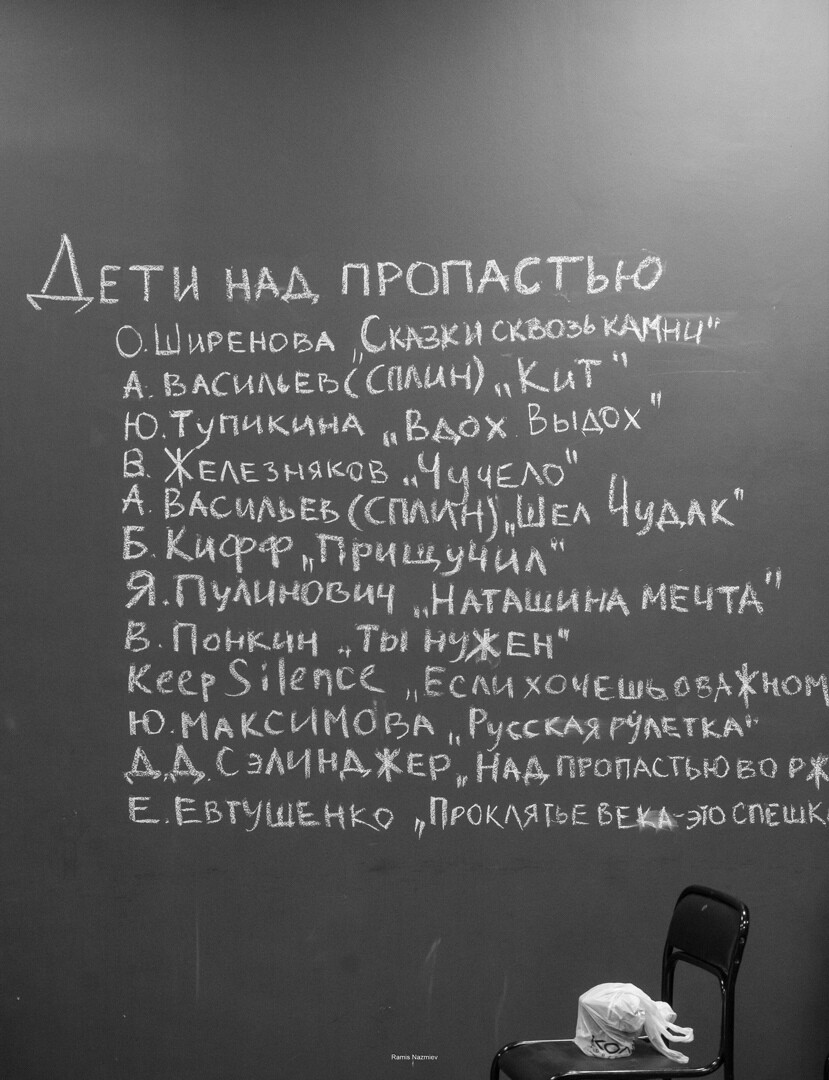 Дети над пропастью
О. Ширенова „Сказки сквозь камни"
А. Васильев (Сплин) „Кит"
Ю. Тупикина „Вдох. Выдох"
В. Железняков „Чучело"
А. Васильев (Сплин) „Шел Чудак"
Б. Кифф „Прищучил"
Я. Пулинович „Наташина мечта"
В. Понкин „Ты нужен"
Keep Silence „Если хочешь о важном
Ю. Максимова „Русская рулетка"
Д.Д. Сэлинджер „Над пропастью во рж
Е. Евтушенко „Проклятье века - это спешк
Ramis Nazmiev